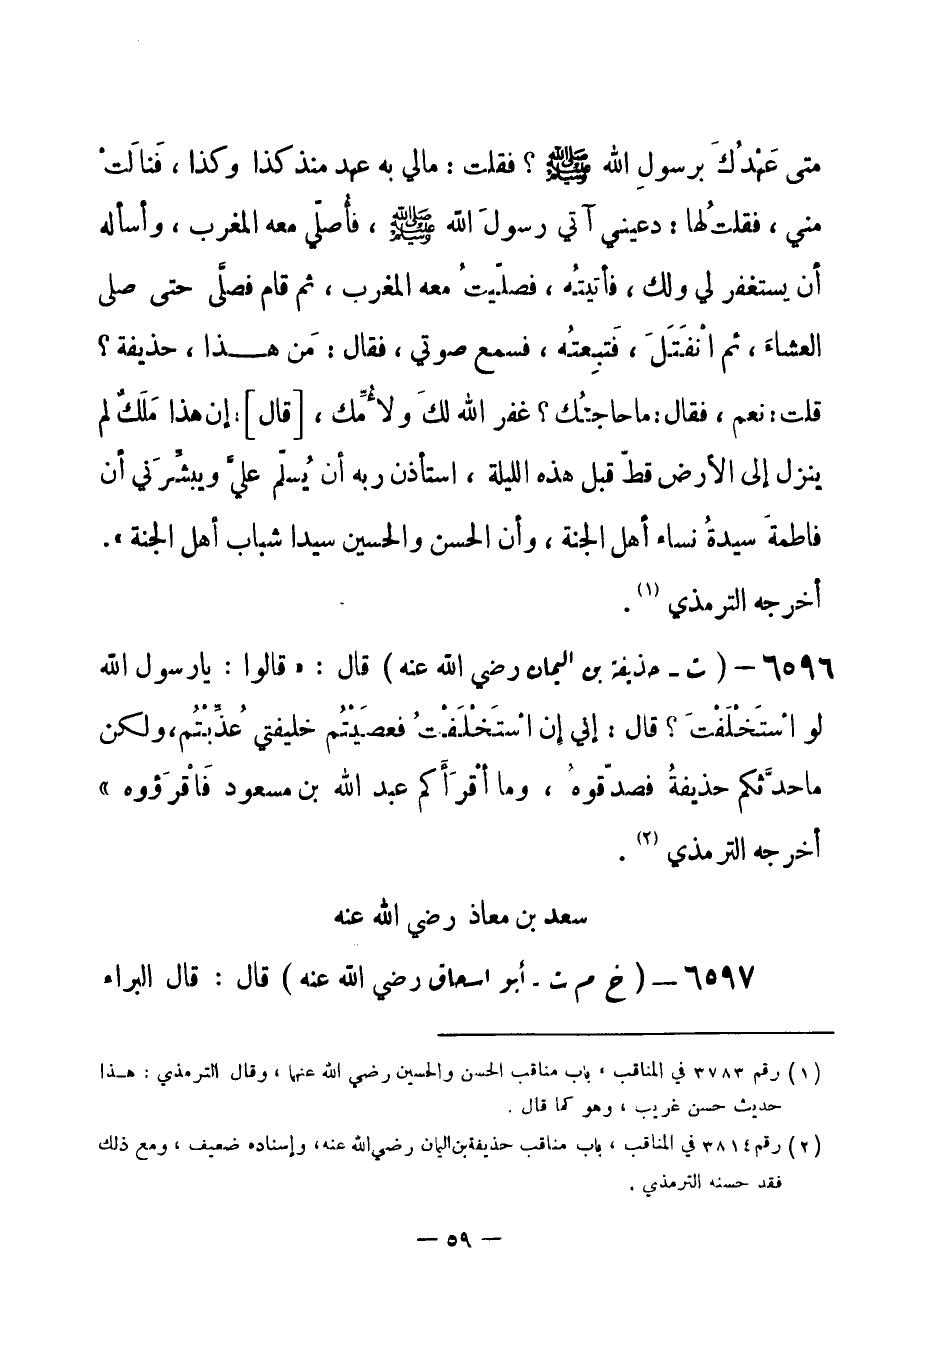 متى عَهْدُكَ برسولِ الله ﷺ ؟ فقلت : مالي به عهد منذ كذا وكذا ، فَنالَتْ
مني ، فقلتُ لها : دعيني آتي رسولَ الله ﷺ ، فأُصلّي معه المغرب ، وأسأله
أن يستغفر لي ولك ، فأتيتُه ، فصلّيتُ معه المغرب ، ثم قام فصلَّى حتى صلى
العشاءَ ، ثم انْفَتَلَ ، فَتبِعتُه ، فسمع صوتي ، فقال : مَن هـــذا ، حذيفة ؟
قلت : نعم ، فقال : ماحاجتُك ؟ غفر الله لكَ ولأُمِّك ، [قال] : إن هذا مَلَكٌ لم
ينزل إلى الأرض قطّ قبل هذه الليلة ، استأذن ربه أن يُسلّم عليَّ ويبشِّرَني أن
فاطمةَ سيدةُ نساء أهل الجنة ، وأن الحسن والحسين سيدا شباب أهل الجنة » .
أخرجه الترمذي (١) .
٦٥٩٦ – ( ت – حذيفة بن اليمان رضي الله عنه ) قال : « قالوا : يارسول الله
لو اسْتَخْلَفْتَ ؟ قال : إني إن اسْتَخْلَفْتُ فعصَيْتُم خليفتي عُذِّبْتُم ، ولكن
ماحدَّثكم حذيفةُ فصدّقوهُ ، وما أقْرَأَكم عبد الله بن مسعود فَاقْرَؤوه »
أخرجه الترمذي (٢) .
سعد بن معاذ رضي الله عنه
٦٥٩٧ – ( خ م ت – أبو اسحاق رضي الله عنه ) قال : قال البراء
(١) رقم ٣٧٨٣ في المناقب ، باب مناقب الحسن والحسين رضي الله عنهما ، وقال الترمذي : هـذا
حديث حسن غريب ، وهو كما قال .
(٢) رقم ٣٨١٤ في المناقب ، باب مناقب حذيفة بن اليمان رضي الله عنه ، وإسناده ضعيف ، ومع ذلك
فقد حسنه الترمذي .
– ٥٩ –